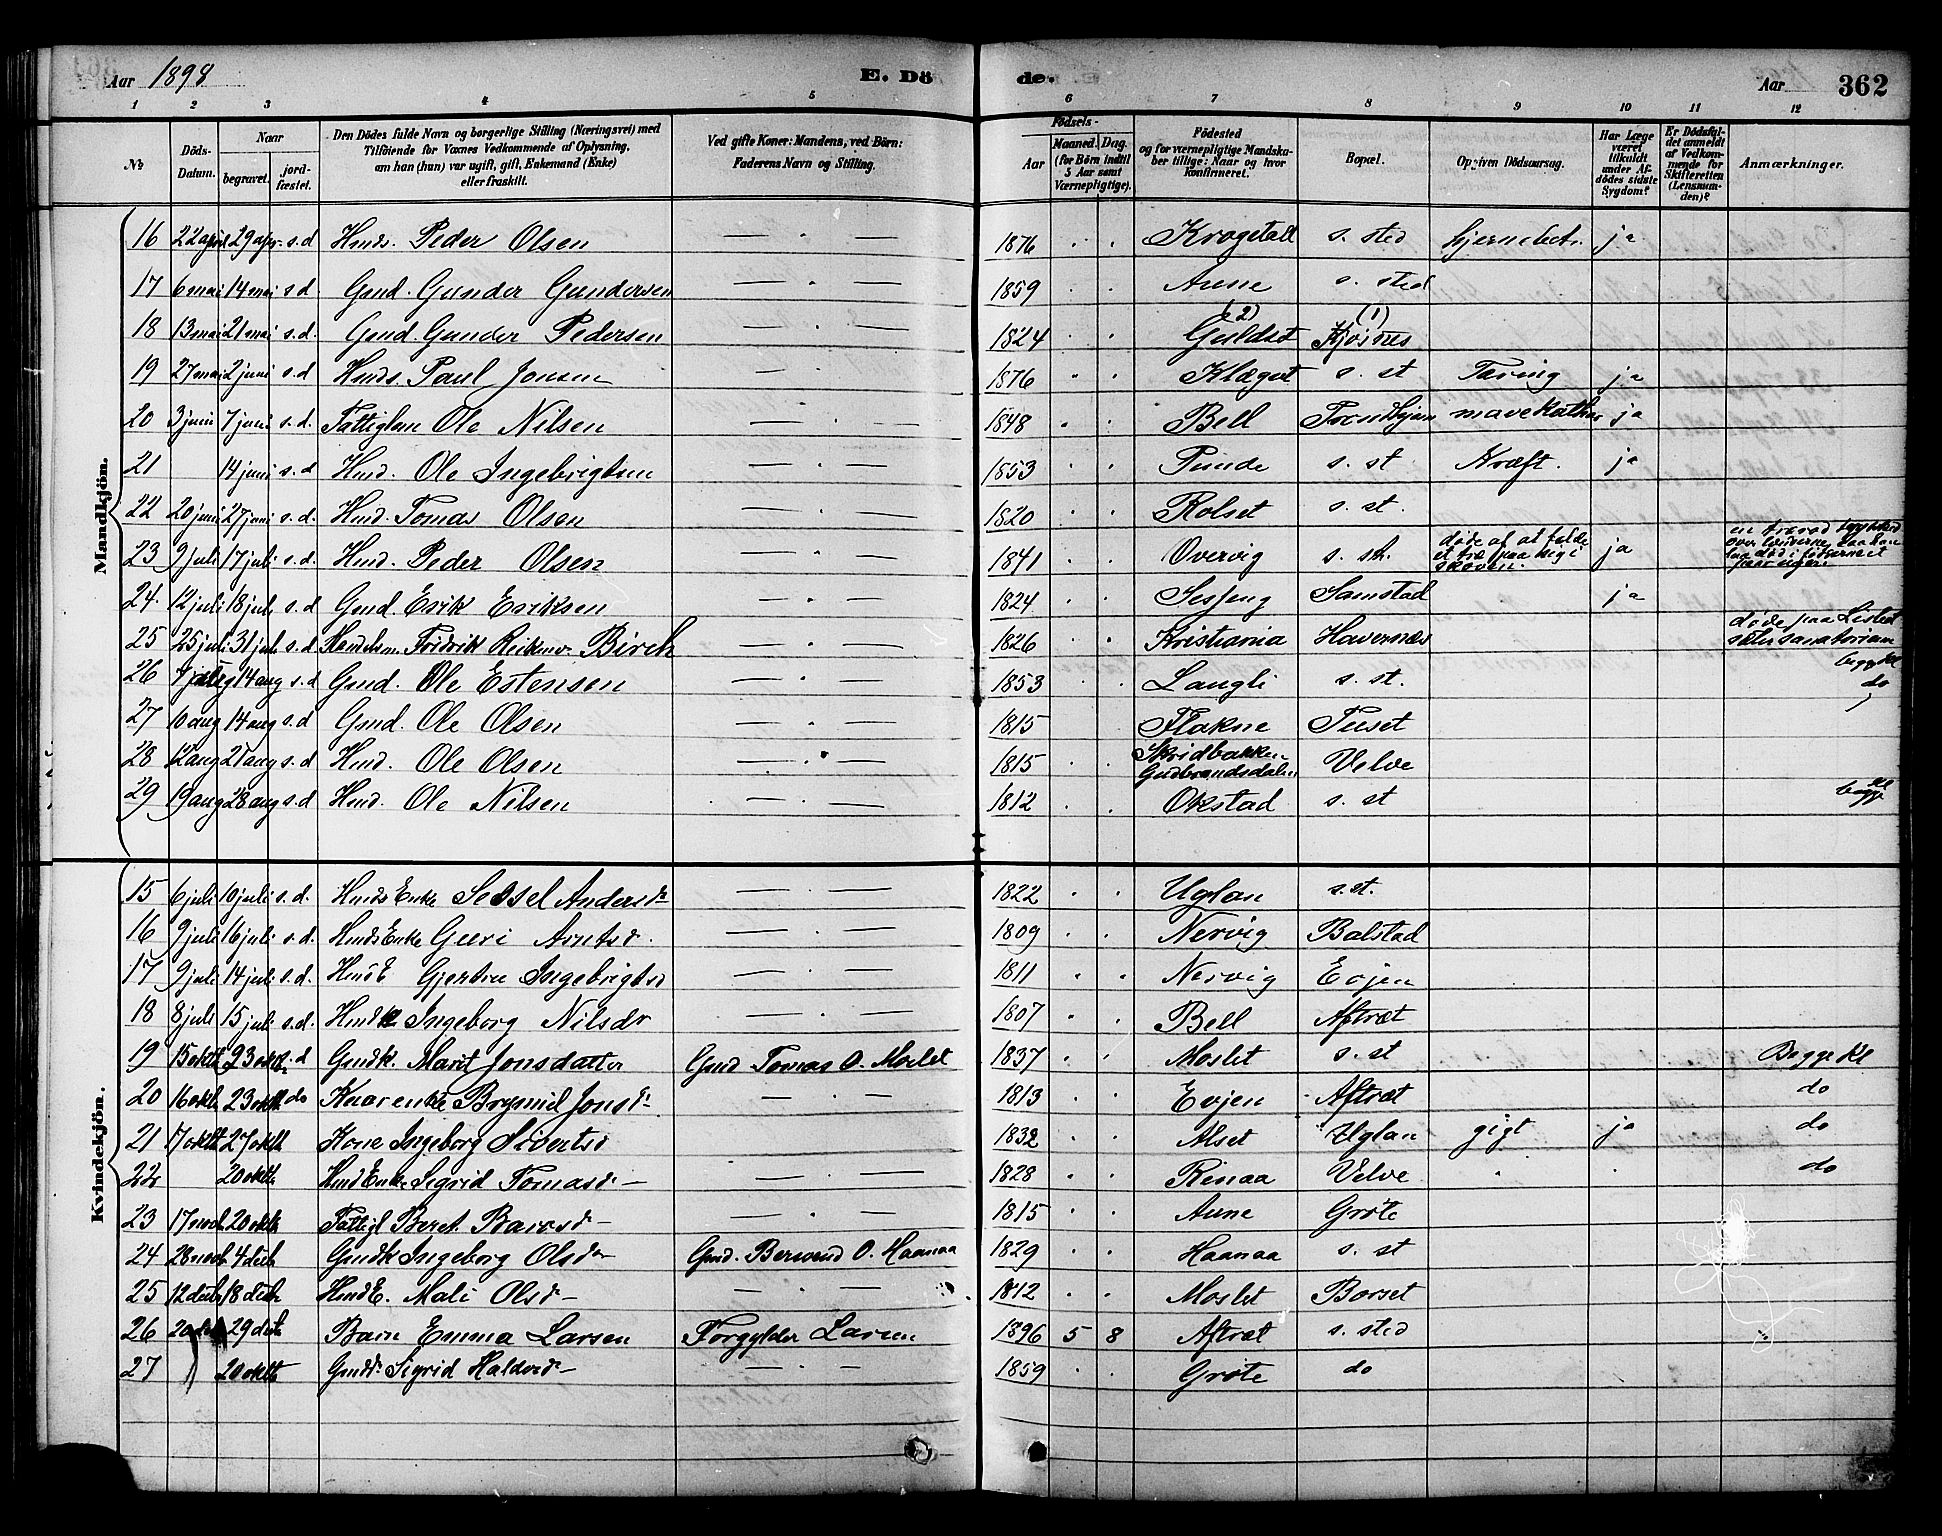 Aar 1898 E. Dö de. Aar 362
1 2 3 4 5 6 7 8 9 10 11 12
No Döds-Datum. Naar begravet. jordfæstet. Den Dödes fulde Navn og borgerlige Stilling (Næringsvei) med Tilföiende for Voxnes Vedkommende af Oplysning, om han (hun) var ugift, gift, Enkemand (Enke) eller fraskilt. Ved gifte Koner: Mandens, ved Börn: Faderens Navn og Stilling. Födsels- Aar Maaned. Dag. (for Börn indtil 5 Aar samt Værnepligtige). Födested og for værnepligtige Mandskaber tillige: Naar og hvor Konfirmeret. Bopæl. Opgiven Dödsaarsag. Har Læge været tilkaldt under Afdödes sidste Sygdom? Er Dödsfaldet anmeldt af Vedkommende for Skifteretten (Lensmanden)? Anmærkninger.
Mandkjön.
16 22 april 29 apr s.d Hmds. Peder Olsen 1876 Krogstad s. sted hjernebet. ja
17 6 mai 14 mai s d. Gmd. Gunder Gundersen 1859 Aune s. sted
18 13 mai 21 mai s.d. Gmd. Gunder Pedersen 1824 (2) Guldset (1) Kjøsnes
19 27 mai 2 juni s.d Hmds. Paul Jonsen 1876 Klæget s. st Tæring ja
20 3 juni 7 juni s.d. Fattiglem Ole Nilsen 1848 Bell Trondhjem mavekathar ja
21 14 juni s.d Hmd. Ole Ingebrigtsen 1853 Punde s. st Kræft. ja
22 20 juni 27 juni s.d. Hmd. Tomas Olsen 1820 Rolset s. st.
23 9 juli 17 juli s.d. Hmd. Peder Olsen 1841 Overvig s. st. døde af at fælde et træ paa sig i skoven. ja
24 12 juli 18 juli s.d Gmd. Erik Eriksen 1824 Sesseng Samstad ja
25 25 juli 31 juli s.d Handelsm. Fridrik Birch 1826 Kristiania Havernæs døde paa sanatorium
26 14 aug s.d Gmd. Ole Estensen 1853 Langli s. st. begge Kl
27 10 aug 14 aug s.d Gmd. Ole Olsen 1815 Flakne Tuset do
28 12 aug 21 aug s.d Hmd. Ole Olsen 1815 Skridbakken Gudbrandsdalen Velve
29 19 aug 28 aug s.d Hmd. Ole Nilsen 1812 Okstad s. st begge Kl
Kvindekjön.
15 6 juli 10 juli s.d. Hmds Enke Sessel Andersdr 1822 Uglan s. st.
16 9 juli 16 juli s.d. Hmds Enke Guri Arntsd. 1809 Nervig Balstad
17 9 juli 14 juli s.d. Hmds E Gjertru Ingebrigtsd 1811 Nervig Evjen
18 8 juli 15 juli s.d. Hmdk Ingeborg Nilsdr 1807 Bell Aftræt
19 15 oktb 23 oktb s.d Gmdk. Marit Jonsdatter Gmd Tomas O. Moslet 1837 Moslet s. st Begge Kl
20 16 oktb 23 oktb do Kaarenke Brynnild Jonsd 1813 Evjen Aftræt do
21 17 oktb 27 oktb Kone Ingeborg Sivertsd 1832 Alset Uglan gigt ja do
22 20 oktb Hmd Enke Sigrid Tomasd 1828 Rinaa Velve do
23 17 20 oktb Fattigl Beret Baarsd 1815 Aune Grøte
24 28 novb 4 decb Gmdk Ingeborg Olsdr Gmd. Berwend O. Haanaa 1829 Haanaa s. st
25 12 decb 18 decb Hmd E. Mali Olsd 1812 Moslet Borset
26 20 decb 29 decb Barn Emma Larsen Forgylder Larsen 1896 5 8 Aftræt s. sted
27 20 oktb Gmds. Sigrid Haldord 1859 Grøte do